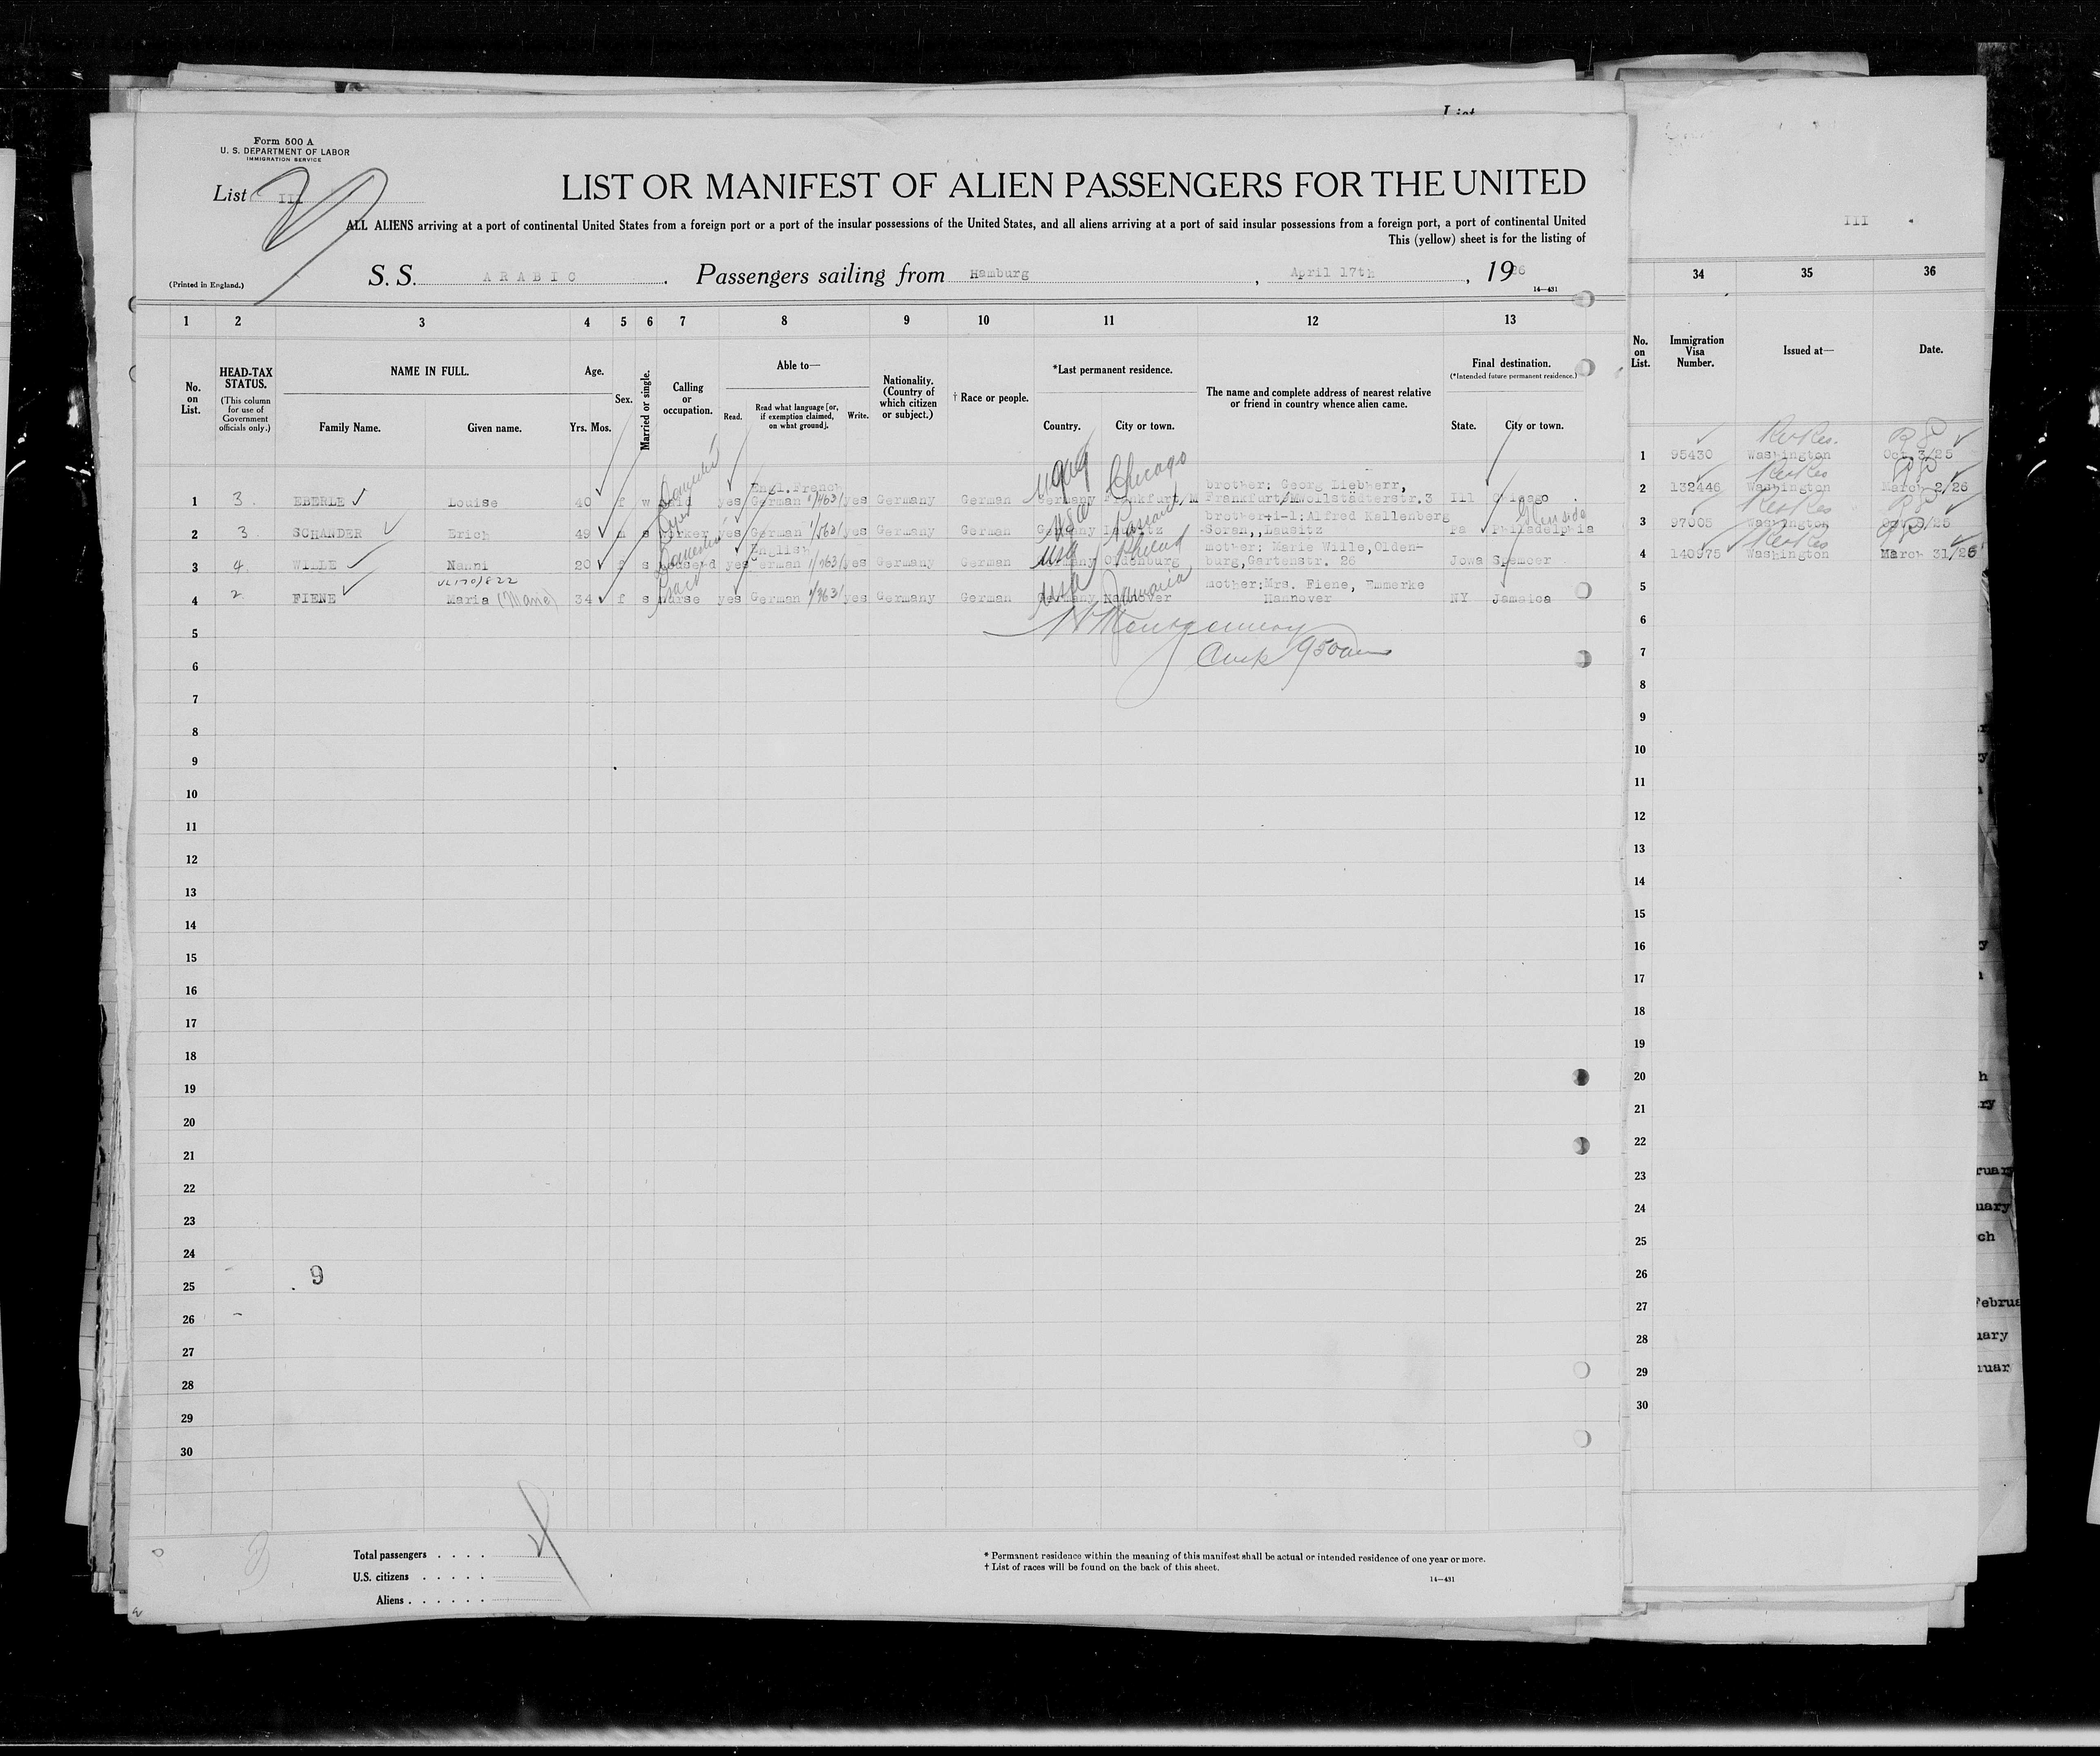 Form 500 A
U. S. DEPARTMENT OF LABOR
IMMIGRATION SERVICE
List III
LIST OR MANIFEST OF ALIEN PASSENGERS FOR THE UNITED
ALL ALIENS arriving at a port of continental United States from a foreign port or a port of the insular possessions of the United States, and all aliens arriving at a port of said insular possessions from a foreign port, a port of continental United
This (yellow) sheet is for the listing of
(Printed in England.)
S. S. ARABIC. Passengers sailing from Hamburg, April 17th, 1926
14—431
1 2 3 4 5 6 7 8 9 10 11 12 13
No. on List.
HEAD-TAX STATUS.
(This column for use of Government officials only.)
NAME IN FULL.
Family Name. Given name.
Age.
Yrs. Mos.
Sex.
Married or single.
Calling or occupation.
Able to—
Read. Read what language [or, if exemption claimed, on what ground]. Write.
Nationality. (Country of which citizen or subject.)
† Race or people.
*Last permanent residence.
Country. City or town.
The name and complete address of nearest relative or friend in country whence alien came.
Final destination.
(*Intended future permanent residence.)
State. City or town.
Chicago
Engl. French
brother: Georg Liebherr,
1 3 EBERLE Louise 40 f w yes German yes Germany German Germany Frankfurt/M Frankfurt/M 3 Ill Chicago
Glenside
brother-i-l: Alfred Kallenberg
2 3 SCHANDER Erich 49 m s worker yes German yes Germany German Germany Lausitz Soran,, Lausitz Pa Philadelphia
Domestic
English
USA
mother: Marie Wille, Olden-
3 4 WILLE Nanni 20 f s yes German yes Germany German Germany Oldenburg burg, Gartenstr. 26 Jowa Spencer
USA Jamaica
mother: Mrs. Fiene, Emmerke
4 2 FIENE Maria (Marie) 34 f s nurse yes German yes Germany German Germany Hannover Hannover NY Jamaica
Montgomery
950am
5
6
7
8
9
10
11
12
13
14
15
16
17
18
19
20
21
22
23
24
9
25
26
27
28
29
30
Total passengers
U.S. citizens
Aliens
* Permanent residence within the meaning of this manifest shall be actual or intended residence of one year or more.
† List of races will be found on the back of this sheet.
14—431
III
34 35 36
No. on List.
Immigration Visa Number.
Issued at—
Date.
1 95430 Washington Oct. 3/25
2 132446 Washington March 2/26
3 97005 Washington
4 140975 Washington March 31/26
5
6
7
8
9
10
11
12
13
14
15
16
17
18
19
20
21
22
23
24
25
26
27
28
29
30